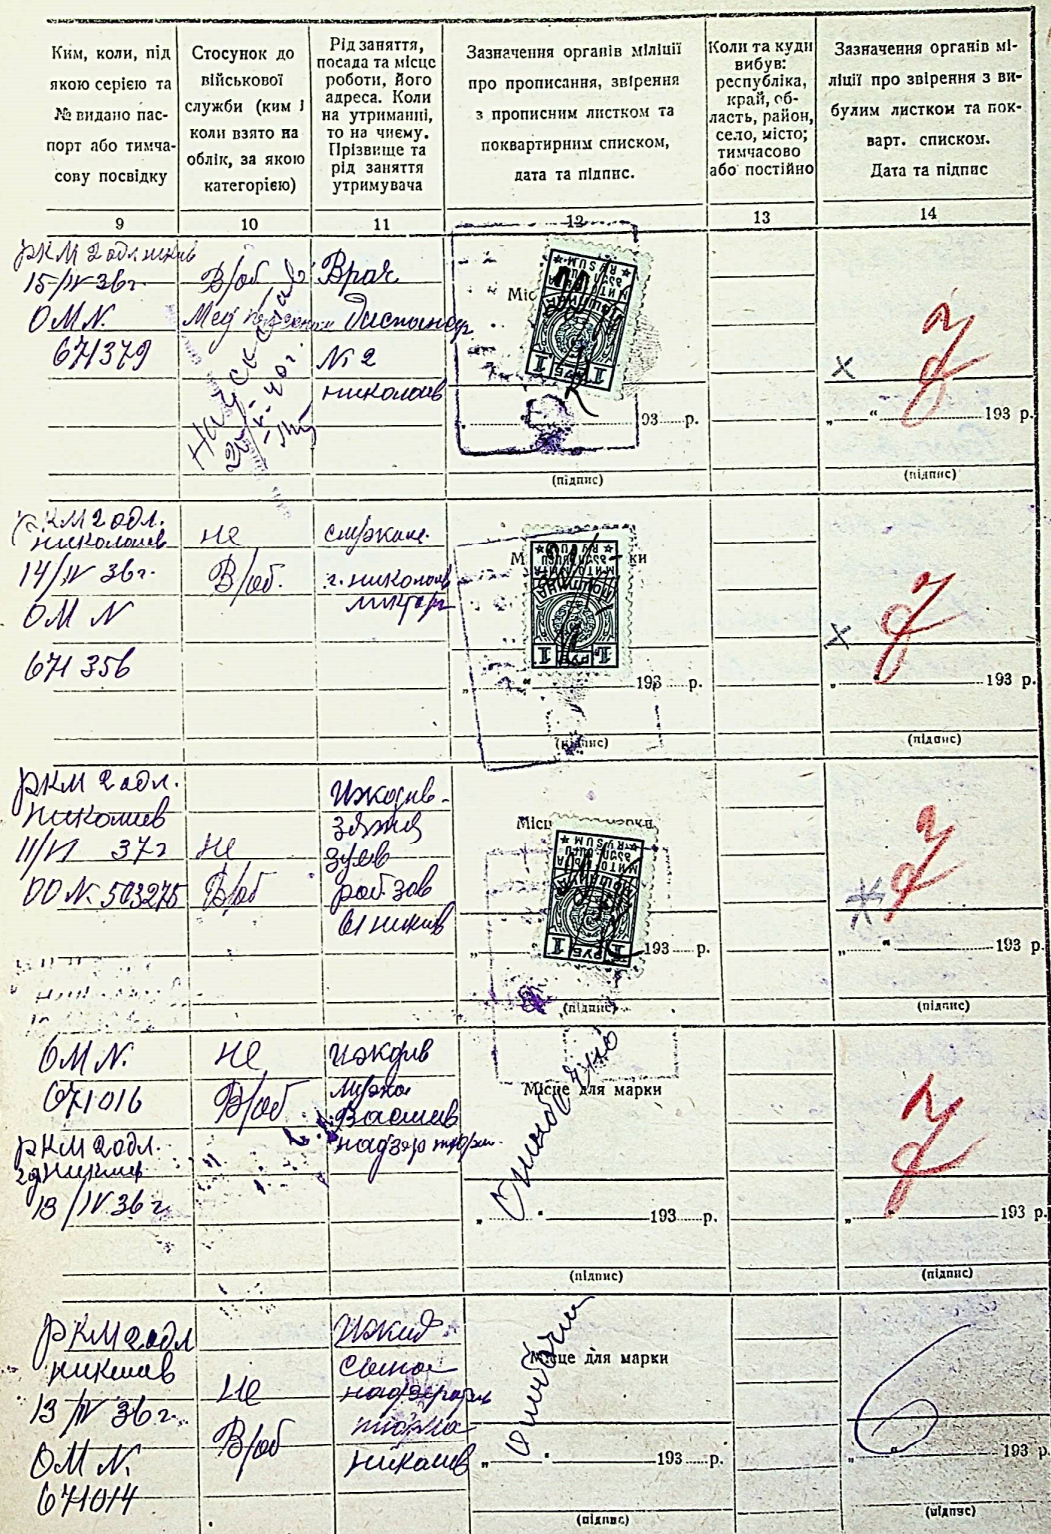 Ким, коли, під
якою серією та
№ видано пас-
порт або тимча-
сову посвідку
Стосунок до
військової
служби (ким і
коли взято на
облік, за якою
категорією)
Рід заняття,
посада та місце
роботи, його
адреса. Коли
на утриманні,
то на чиєму.
Прізвище та
рід заняття
утримувача
Зазначення органів міліції
про прописання, звірення
з прописним листком та
поквартирним списком,
дата та підпис.
Коли та куди
вибув:
республіка,
край, об-
ласть, район,
село, місто;
тимчасово
або постійно
Зазначення органів мі-
ліції про звірення з ви-
булим листком та пок-
варт. списком.
Дата та підпис
9 10 11 12 13 14
РКМ 2 одл
15/IV 36 г.
ОМ N.
671379
В/об
Врач
Диспансер
№ 2
николаев
25/X-40 г.
193 р.
(підпис)
„ “ 193 р.
(підпис)
РКМ 2 одл.
николаев
14/IV 36 г.
ОМ N
671356
не
В/об.
служащ.
г. николаев
ПОШЛИНА
1 РУБ 1
„ “ 193 р.
(підпис)
„ “ 193 р.
(підпис)
РКМ 2 одл.
николаев
11/VI 37 г
ОО N. 503275
не
В/об
Иждив.
зятя
раб зав
61 никол
1 РУБ 1
193 р.
(підпис)
„ “ 193 р.
(підпис)
ОМ N.
671016
РКМ 2 одл.
13/IV 36 г.
не
В/об
Иждив
мужа
надзер тюрм.
Місце для марки
Ошибочно
„ “ 193 р.
(підпис)
„ “ 193 р.
(підпис)
РКМ 2 одл
николаев
13/IV 36 г.
ОМ N.
671014
не
В/об
Ижид
сына
николаев
Місце для марки
Ошибочно
„ “ 193 р.
(підпис)
„ “ 193 р.
(підпис)